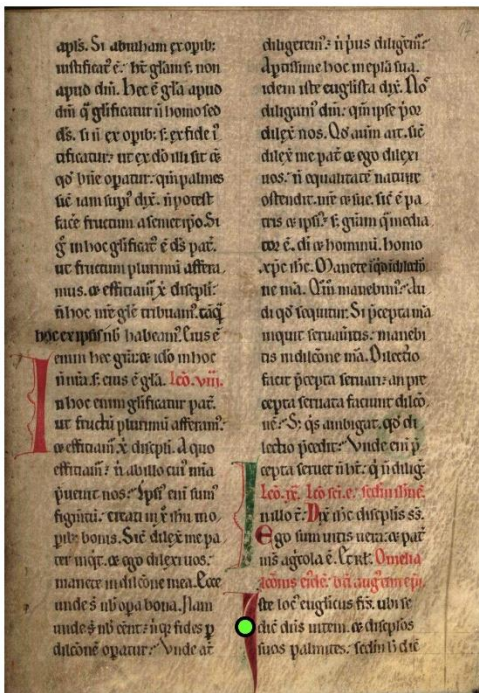 apls. Si abraham ex opib;
iustificat' ē. ht' gl'am s; non
apud dm̄. Hec ē gl'a apud
dm̄ q̄ gl'ificatur ñ homo sed
ds. si ñ ex opib; s; ex fide i
tificatur. ut ex dō illi sit &
qd' bn̄e opatur. qm̄ palmes
sic̄ iam supi' dix̄. ñ potest
face fructum a semetip̄o. Si
g̊ in hoc gl'ificat' ē ds pat'.
ut fructum plurimū affera
mus. & efficiam' x̄ discipli.
ñ hoc nr̄e gl'e tribuam'. tāq̄
hoc ex ipsis nb̄ habeam'. Eius ē
enim hec gr̄a. & ido in hoc
ñ nr̄a s; eius ē gl'a. Lcō. viii.
In hoc enim gl'ificatur pat'.
ut fructū plurimū afferam'.
& efficiam' x̄ discpli. A quo
efficiam'. ñ ab illo cui' mīa
p̄uenit nos. Ipsi' eni sum'
figm̄tū. creati in x̄ ihu in o
pib; bonis. Sic̄ dilex̄ me pa
ter inqt'. & ego dilexi uos.
manete in dilcōne mea. Ecce
unde s̄ nb̄ opa bona. Nam
unde s̄ nb̄ eēnt. ñ qr fides p
dilcōne opatur. Vnde at'
diligerem'. ñ p'us diligem'.
Aptissime hoc in ep̄la sua.
idem iste euglista dix̄. Nos
diligam' dm̄. qm̄ ipse p'or
dilex̄ nos. Qd' autm̄ ait. sic̄
dilex̄ me pat' & ego dilexi
uos. ñ equalitatē nature
ostendit. nr̄e & sue. sic̄ ē pa
tris & ipsi'. s; gr̄am q̄ media
tor ē. di & hominū. homo
xp̄c ihc. Manete in dilectio
ne mīa. Qm̄ manebim'. Au
di qd' sequitur. Si p̄cepta mīa
inquit seruau̅itis. manebi
tis in dilcōne mīa. Dilectio
facit p̄cepta seruari. an pre
cepta seruata faciunt dilcō
nē. S; q̄s ambigat. qd' di
lectio p̄cedit. Vnde eni p
cepta seruet ñ ht'. q' ñ dilig'.
Lcō. ix. Lcō sci. e. scdm iohnē.
In illo t'. Dix̄ ihc discplis s's.
Ego sum uitis uera. & pat'
m's agcola ē. Et rl'. Omelia
lcōnis ei'dē. bti augtini ep̄i.
Iste loc' euglicus fr̄s. ubi se
dic̄ dn̄s uitem. & discplos
suos palmites. scdm h' dic̄